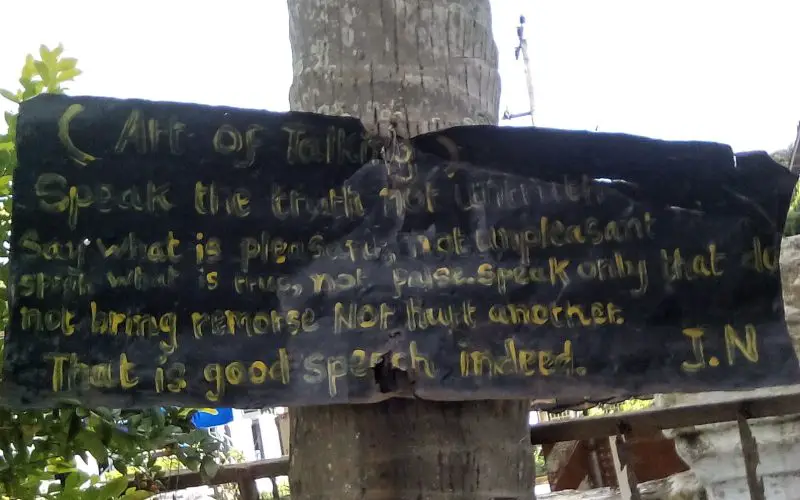 ( Art of Talking )
Speak the truth not untruth
Say what is pleasant, not unpleasant
speak what is true, not false. Speak only that do
not bring remorse Nor hurt another.
That is good speech indeed. J.N